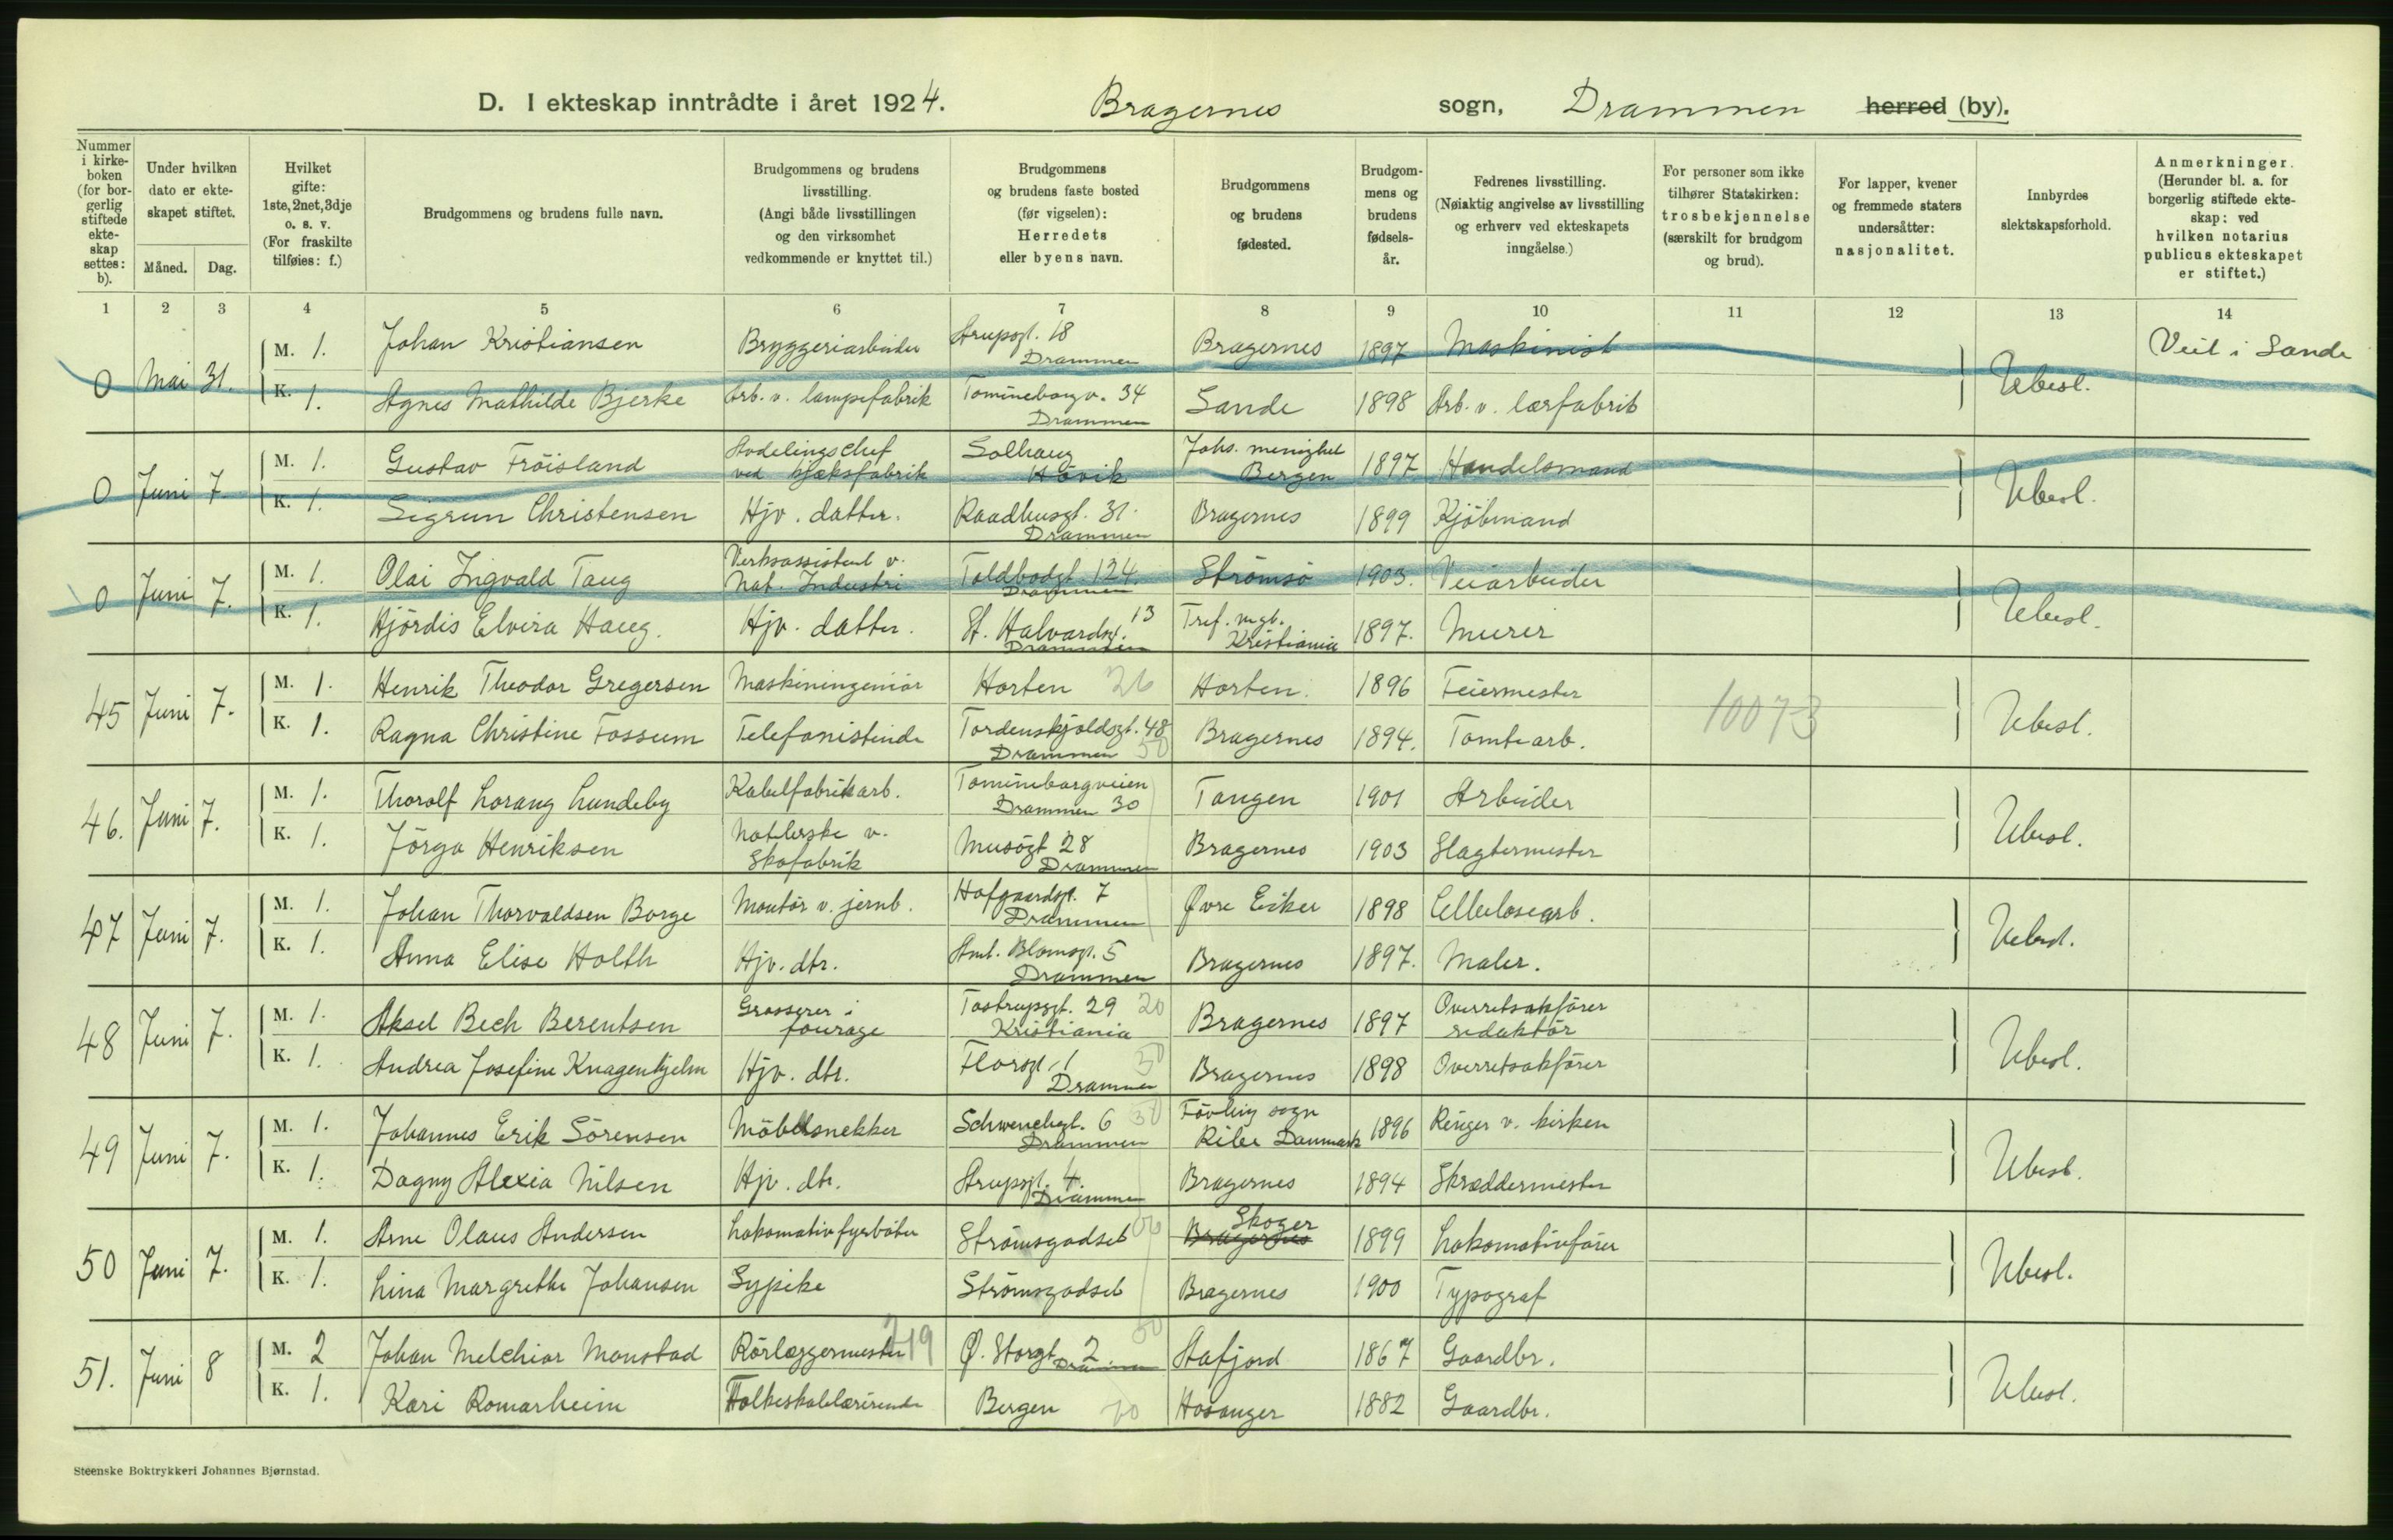 D. I ekteskap inntrådte i året 1924. Bragernes sogn, Drammen herred (by).
Nummer i kirkeboken (for borgerlig stiftede ekteskap settes: b).
Under hvilken dato er ekteskapet stiftet.
Måned. Dag.
Hvilket gifte: 1ste, 2net, 3dje o. s. v. (For fraskilte tilføies: f.)
Brudgommens og brudens fulle navn.
Brudgommens og brudens livsstilling. (Angi både livsstillingen og den virksomhet vedkommende er knyttet til.)
Brudgommens og brudens faste bosted (før vigselen): Herredets eller byens navn.
Brudgommens og brudens fødested.
Brudgommens og brudens fødselsår.
Fedrenes livsstilling. (Nøiaktig angivelse av livsstilling og erhverv ved ekteskapets inngåelse.)
For personer som ikke tilhører Statskirken: trosbekjennelse (særskilt for brudgom og brud).
For lapper, kvener og fremmede staters undersåtter: nasjonalitet.
Innbyrdes slektskapsforhold.
Anmerkninger. (Herunder bl. a. for borgerlig stiftede ekteskap: ved hvilken notarius publicus ekteskapet er stiftet.)
1 2 3 4 5 6 7 8 9 10 11 12 13 14
0 Mai 31. M. 1. Johan Kristiansen Bryggeriarbeider Strupsgt. 18 Drammen Bragernes 1897 Maskinist Ubesl. Viet i Sande
K. 1. Agnes Mathilde Bjerke Arb. v. lampefabrik Tomineborgv. 34 Drammen Sande 1898 Arb. v. lærfabrik
0 Juni 7 M. 1. Gustav Fröisland Avdelingschef ved kjæksfabrik Solhaug Hövik Johs. menighet Bergen 1897 Handelsmand Ubesl.
K. 1. Sigrun Christensen Hjv. datter. Raadhusgt. 31. Drammen Bragernes 1899 Kjöbmand
0 Juni 7. M. 1. Olai Ingvald Taug Verksassistent v. Nat. Industri Toldbodgt 124. Drammen Strömsö 1903. Veiarbeider Ubesl.
K. 1. Hjördis Elvira Haug. Hjv. datter. St. Halvardsgt. 13 Drammen Tref. mgh. Kristiania 1897. Murer
45 Juni 7. M. 1. Henrik Theodor Gregersen Maskiningeniör Horten 26 Horten. 1896 Feiermester 10073 Ubesl.
K. 1. Ragna Christine Fossum Telefonistinde Tordenskjoldsgt. 48 Drammen 50 Bragernes 1894. Tomtearb.
46. Juni 7. M. 1. Thorolf Lorang Lundeby Kabelfabrikarb. Tomineborgveien Drammen 30 Tangen 1901 Arbeider Ubesl.
K. 1. Jörga Henriksen Natlerske v. Skofabrik Musögt 28 Drammen Bragernes 1903 Slagtermester
47 Juni 7. M. 1. Johan Thorvaldsen Borge Montör v. jernb. Hofgaardsgt. 7 Drammen Øvre Eiker 1898 Cellulosearb. Ubesl.
K. 1. Anna Elise Holth Hjv. dtr. Amt. Blomsgt. 5 Drammen Bragernes 1897. Maler.
48 Juni 7. M. 1. Aksel Bech Berentsen Grosserer i fourage Tostrupsgt. 29 20 Kristiania Bragernes 1897 Overretssakförer redaktör Ubesl.
K. 1. Andrea Josefine Knagenhjelm Hjv. dtr. Florsgt. 1 Drammen 30 Bragernes 1898 Overretssakförer
49 Juni 7. M. 1. Johannes Erik Sörensen Möbelsnekker Schwenchsgt. 6 30 Drammen Fövling sogn Ribe Danmark 1896 Ringer v. kirken Ubesl.
K. 1. Dagny Alexia Nilsen Hjv. dtr. Strupsgt. 4. Drammen Bragernes 1894 Skræddermester
50 Juni 7. M. 1. Arne Olaus Andersen Lokomotivfyrböter Strömsgodset 00 Bragernes Skoger 1899 Lokomotivförer Ubesl.
K. 1. Lina Margrethe Johansen Sypike Strömsgodset Bragernes 1900 Typograf
51. Juni 8 M. 2 Johan Melchior Monstad Rörlæggermester 219 Ø. Storgt. 2 Drammen Stafjord 1867 Gaardbr. Ubesl.
K. 1. Kari Romarheim Folkeskolelærerinde Bergen Hosanger 1882 Gaardbr.
Steenske Boktrykkeri Johannes Bjørnstad.